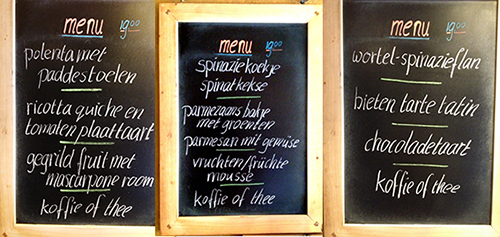 menu 19.00
polenta met
paddestoelen
ricotta quiche en
tomaten plaattaart
gegrild fruit met
mascarpone room
koffie of thee
menu 19.00
spinazie koekje
spinatkekse
parmezaans bakje
met groenten
parmesan mit gemüse
vruchten/früchte
mousse
koffie of thee
menu 19.00
wortel-spinazieflan
bieten tarte tatin
chocoladetaart
koffie of thee